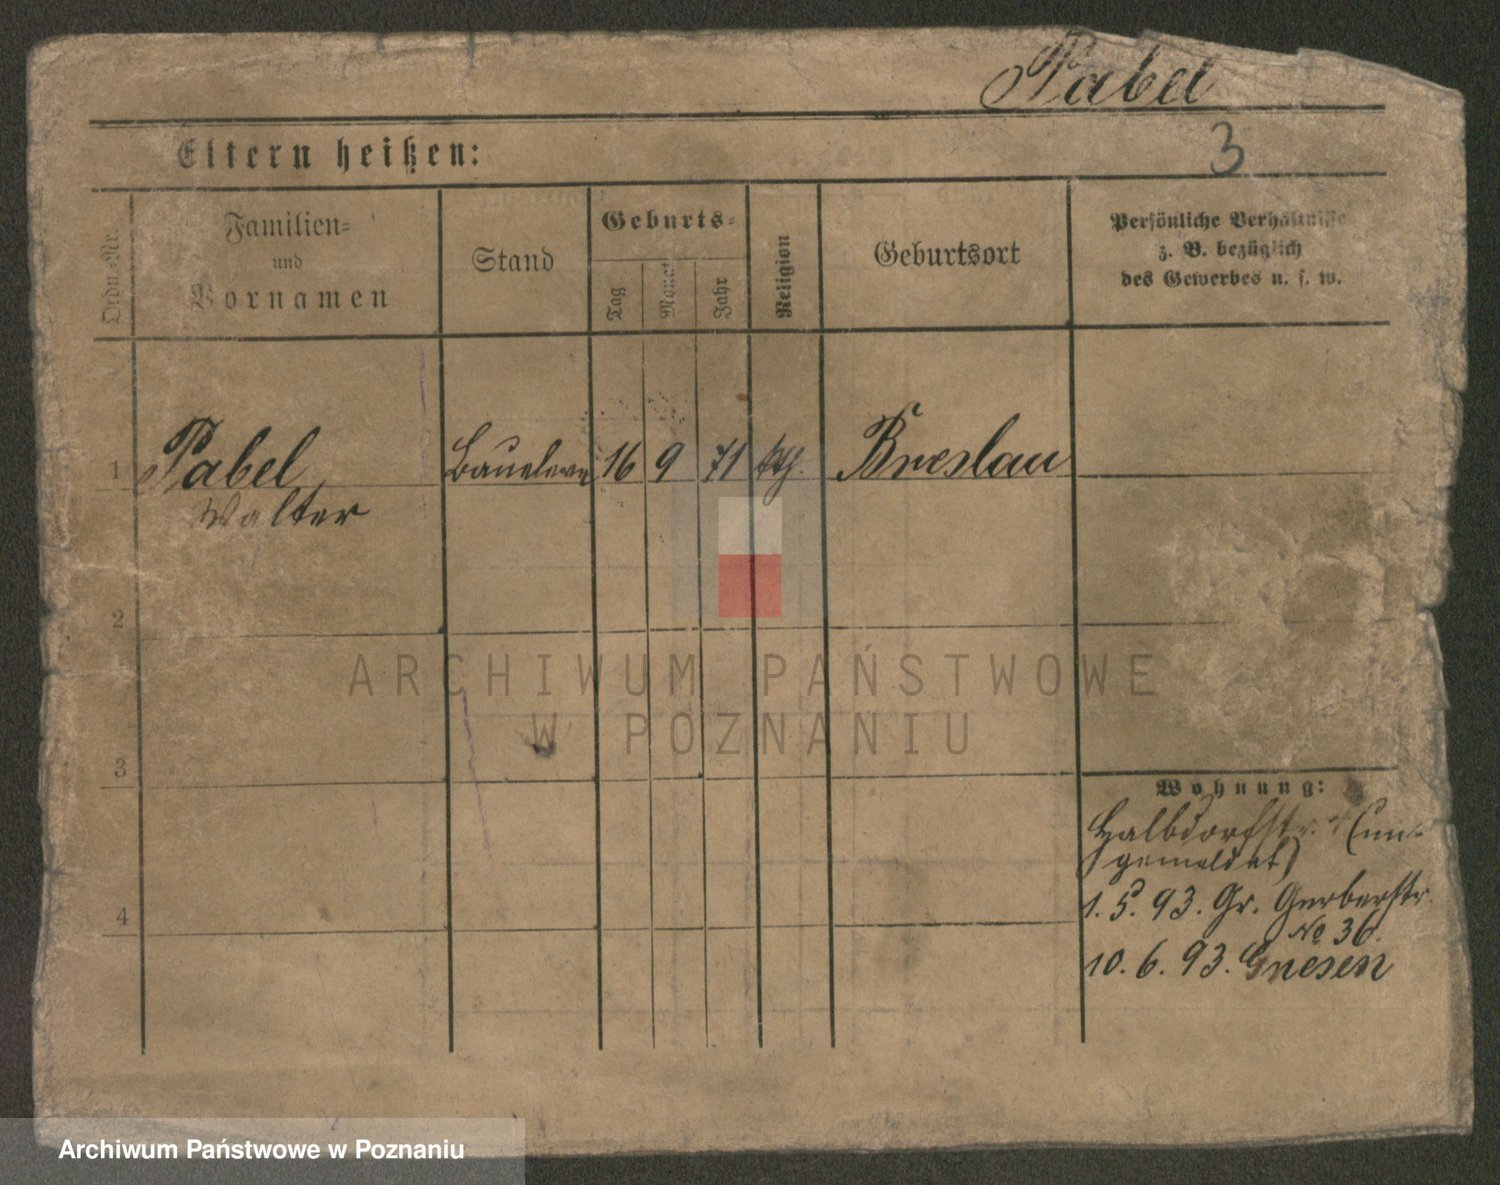 Pabel
Eltern heißen:
3
Ordn.-Nr.
Familien-
und
Vornamen
Stand
Geburts-
Tag
Monat
Jahr
Religion
Geburtsort
Persönliche Verhältnisse
z. B. bezüglich
des Gewerbes u. s. w.
1
Pabel
Walter
Baueleve
16
9
71
kth.
Breslau
2
ARCHIWUM PAŃSTWOWE
W POZNANIU
3
Wohnung:
Halbdorfstr. (un-
gemeldet)
4
1. 5. 93. Gr. Gerberstr.
No 36.
10. 6. 93. Gnesen
Archiwum Państwowe w Poznaniu